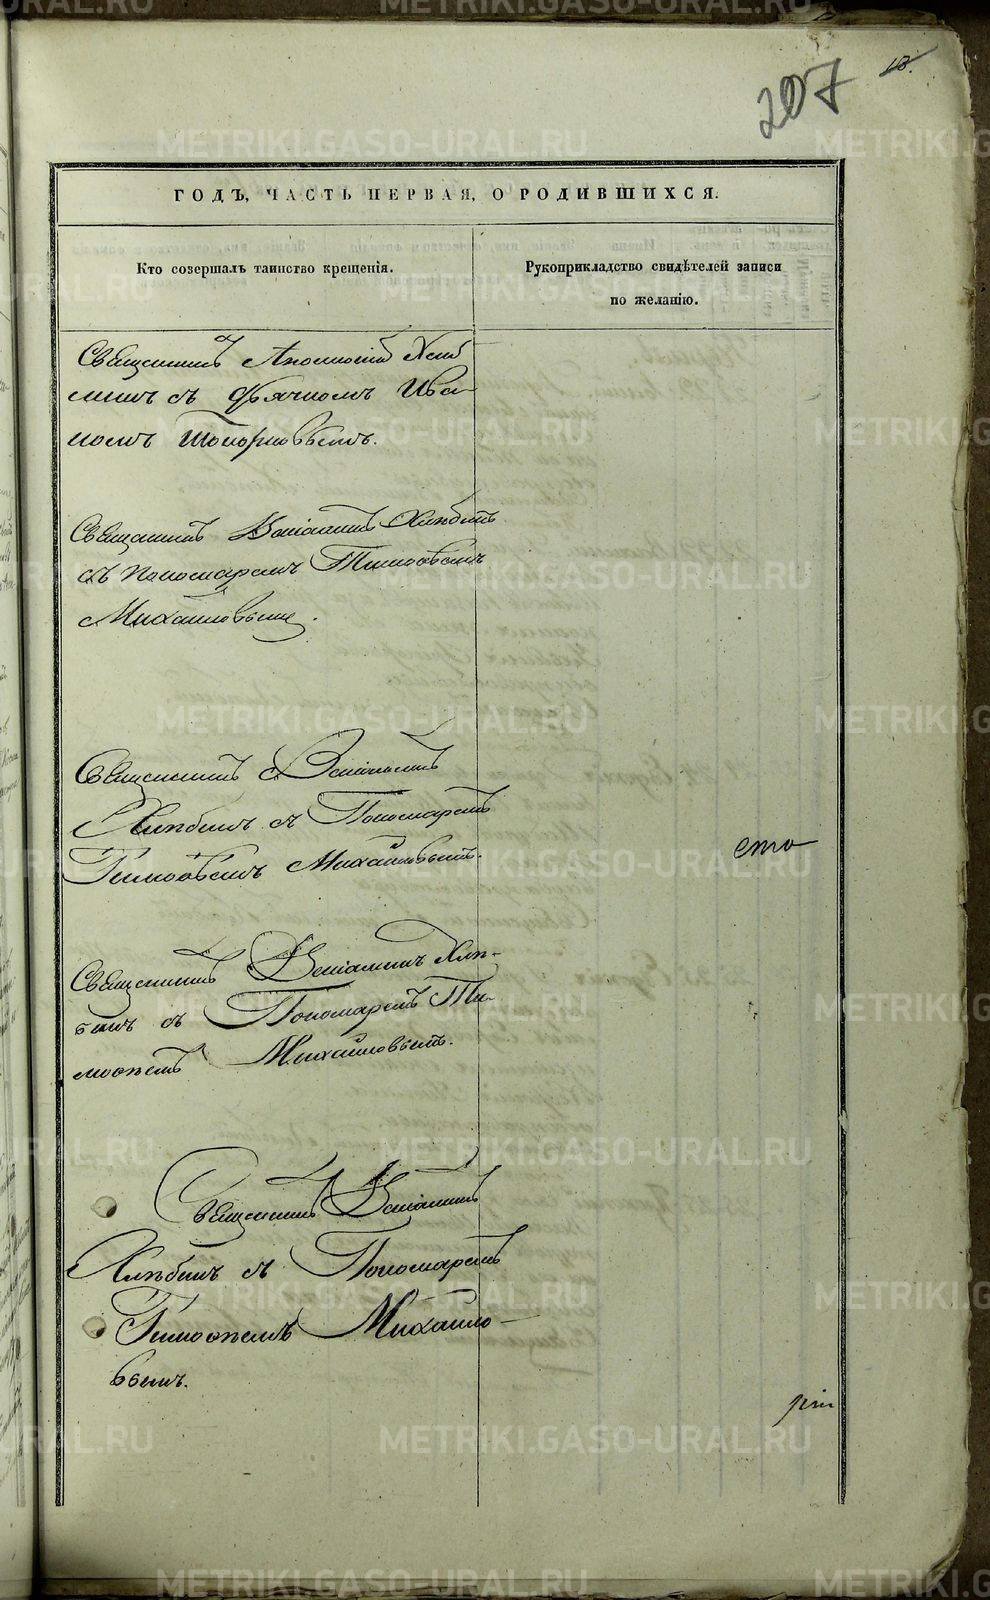 207
18.
ГОДЪ, ЧАСТЬ ПЕРВАЯ, О РОДИВШИХСЯ.
Кто совершалъ таинство крещенія.
Рукоприкладство свидѣтелей записи
по желанію.
Священникъ
съ Дьячкомъ Ива-
номъ Топорковымъ.
Священникъ Веніаминъ Хлѣбинъ
съ Пономаремъ Тимофѣемъ
Михайловымъ.
Священникъ Веніаминъ
Хлѣбинъ съ Пономаремъ
Тимофѣемъ Михайловымъ.
Священникъ Веніаминъ Хлѣ-
бинъ съ Пономаремъ Ти-
мофѣемъ Михайловымъ.
Священникъ Веніаминъ
Хлѣбинъ съ Пономаремъ
Тимофѣемъ Михайло-
вымъ.
METRIKI.GASO-URAL.RU